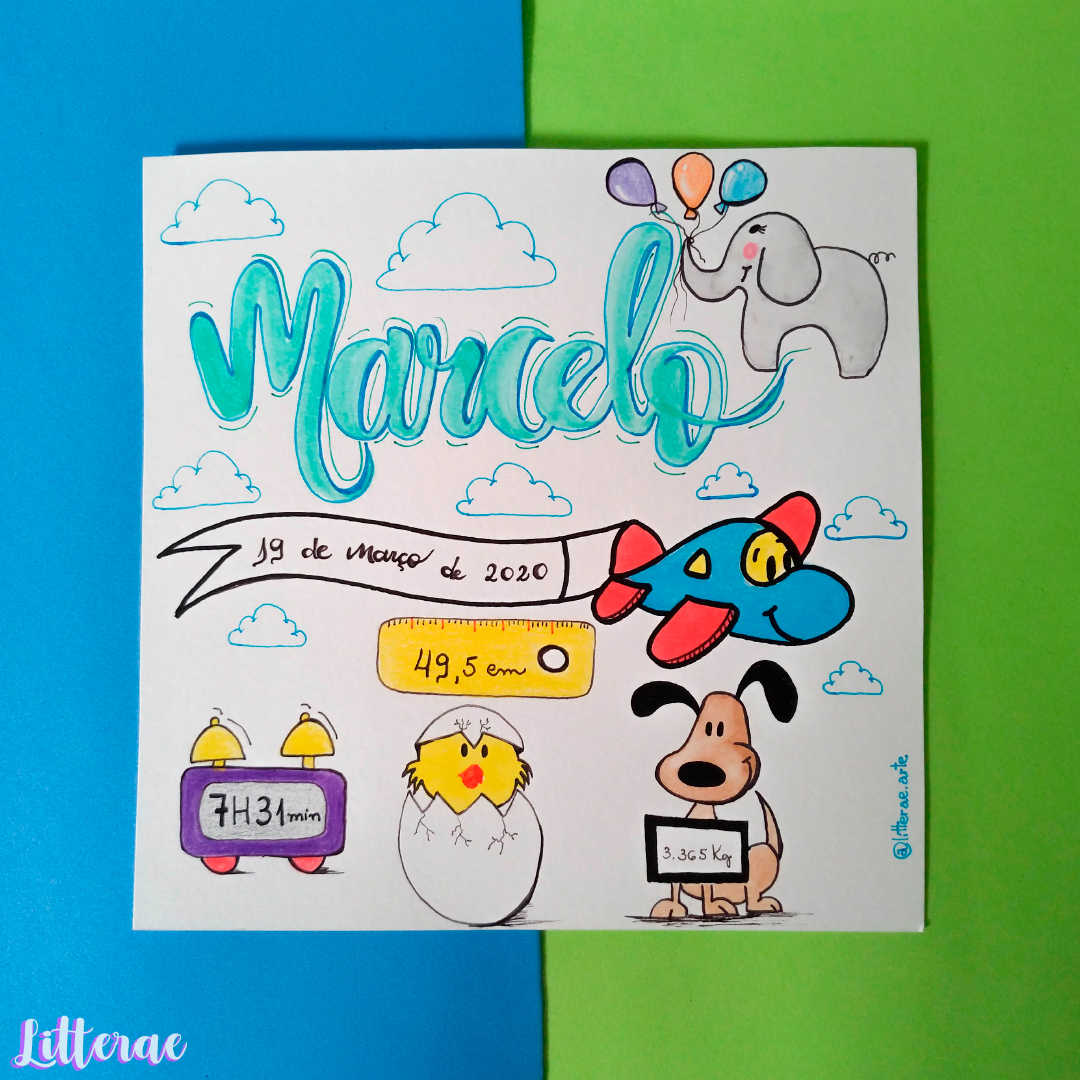 Marcelo
19 de março de 2020
49,5 cm
7H31min
3.365 Kg
@litterae.arte
Litterae